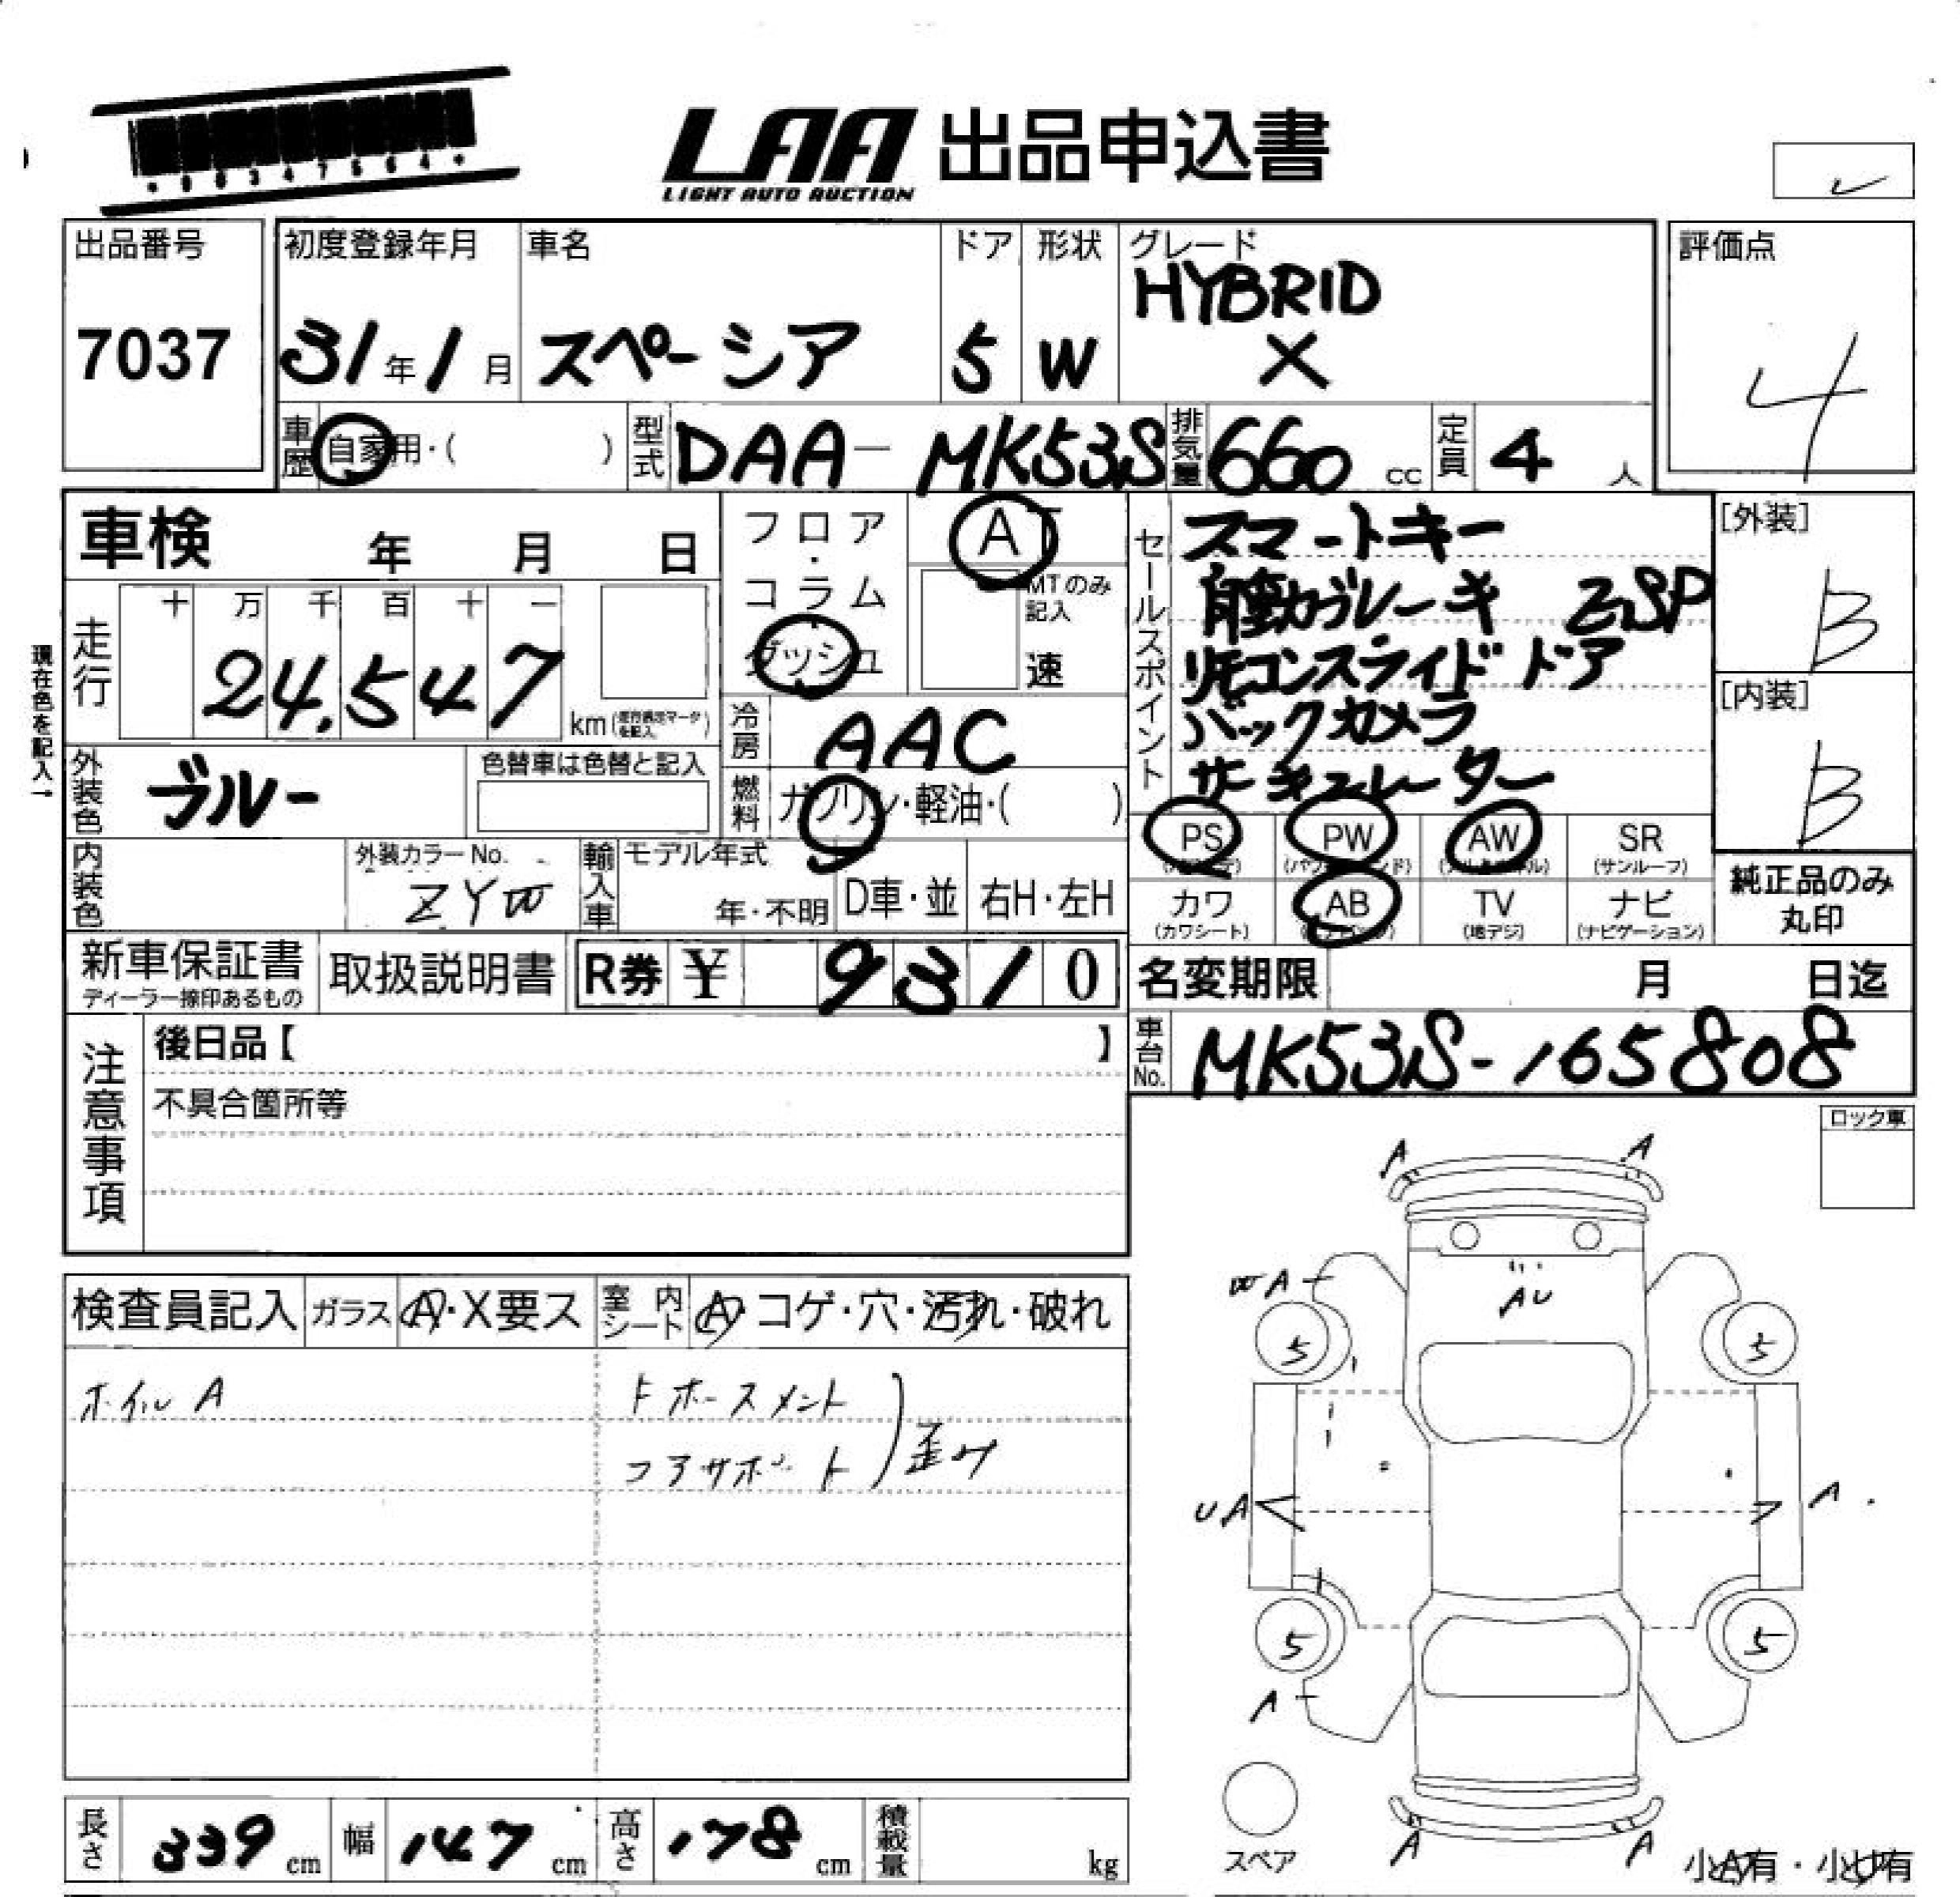 LAA 出品申込書
LIGHT AUTO AUCTION
出品番号
7037
初度登録年月
31年1月
車名
スペーシア
ドア
5
形状
W
グレード
HYBRID
X
評価点
4
車歴 自家用・( )
型式 DAA-MK53S
排気量 660 cc
定員 4 人
車検 年 月 日
現在色を記入→
走行
十 万 千 百 十 一
24,547
km
フロア・コラム
ダッシュ
AT
MTのみ記入
速
冷房 AAC
燃料 ガソリン・軽油・( )
セールスポイント
スマートキー
自動ブレーキ ESP
リモコンスライドドア
バックカメラ
サーキュレーター
[外装]
B
[内装]
B
外装色 ブルー
色替車は色替と記入
内装色
外装カラーNo.
ZYW
輸入車
モデル年式
年・不明
D車・並
右H・左H
PS
PW
(パワーウィンド)
AW
SR
(サンルーフ)
カワ
(カワシート)
AB
TV
(地デジ)
ナビ
(ナビゲーション)
純正品のみ
丸印
新車保証書
ディーラー捺印あるもの
取扱説明書
R券 ¥ 9310
名変期限 月 日迄
車台No. MK53S-165808
注意事項
後日品【 】
不具合箇所等
ロック車
検査員記入
ガラス A・X要ス
室内シート A・コゲ・穴・汚れ・破れ
ホイル A
コアサポート
歪み
A A
A
AU
5 5
UA A
5 5
A
A A
スペア
小A有・小U有
長さ 339 cm
幅 147 cm
高さ 178 cm
積載量 kg